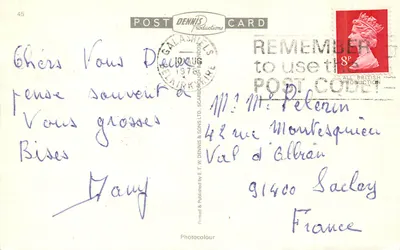 45
POST CARD
DENNIS
Productions
GALASHIELS
AUG
1978
SELKIRKSHIRE
REMEMBER
to use the
POST CODE
8P
Chers Vous Deux
pense souvent à
Vous grosses
Bises
M. Mme Pelerin
42 rue Montesquieu
Val d'Albian
91400 Saclay
France
Printed & Published by E. T. W. DENNIS & SONS LTD., SCARBOROUGH
Photocolour